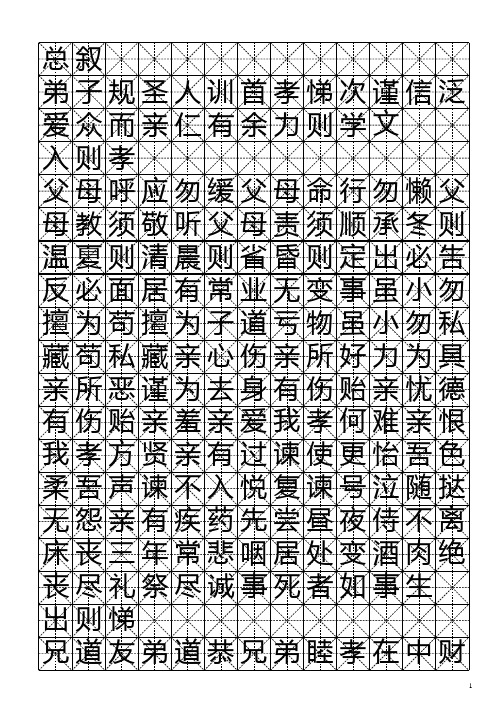 总叙
弟子规圣人训首孝悌次谨信泛
爱众而亲仁有余力则学文
入则孝
父母呼应勿缓父母命行勿懒父
母教须敬听父母责须顺承冬则
温夏则清晨则省昏则定出必告
反必面居有常业无变事虽小勿
擅为苟擅为子道亏物虽小勿私
藏苟私藏亲心伤亲所好力为具
亲所恶谨为去身有伤贻亲忧德
有伤贻亲羞亲爱我孝何难亲恨
我孝方贤亲有过谏使更怡吾色
柔吾声谏不入悦复谏号泣随挞
无怨亲有疾药先尝昼夜侍不离
床丧三年常悲咽居处变酒肉绝
丧尽礼祭尽诚事死者如事生
出则悌
兄道友弟道恭兄弟睦孝在中财
1